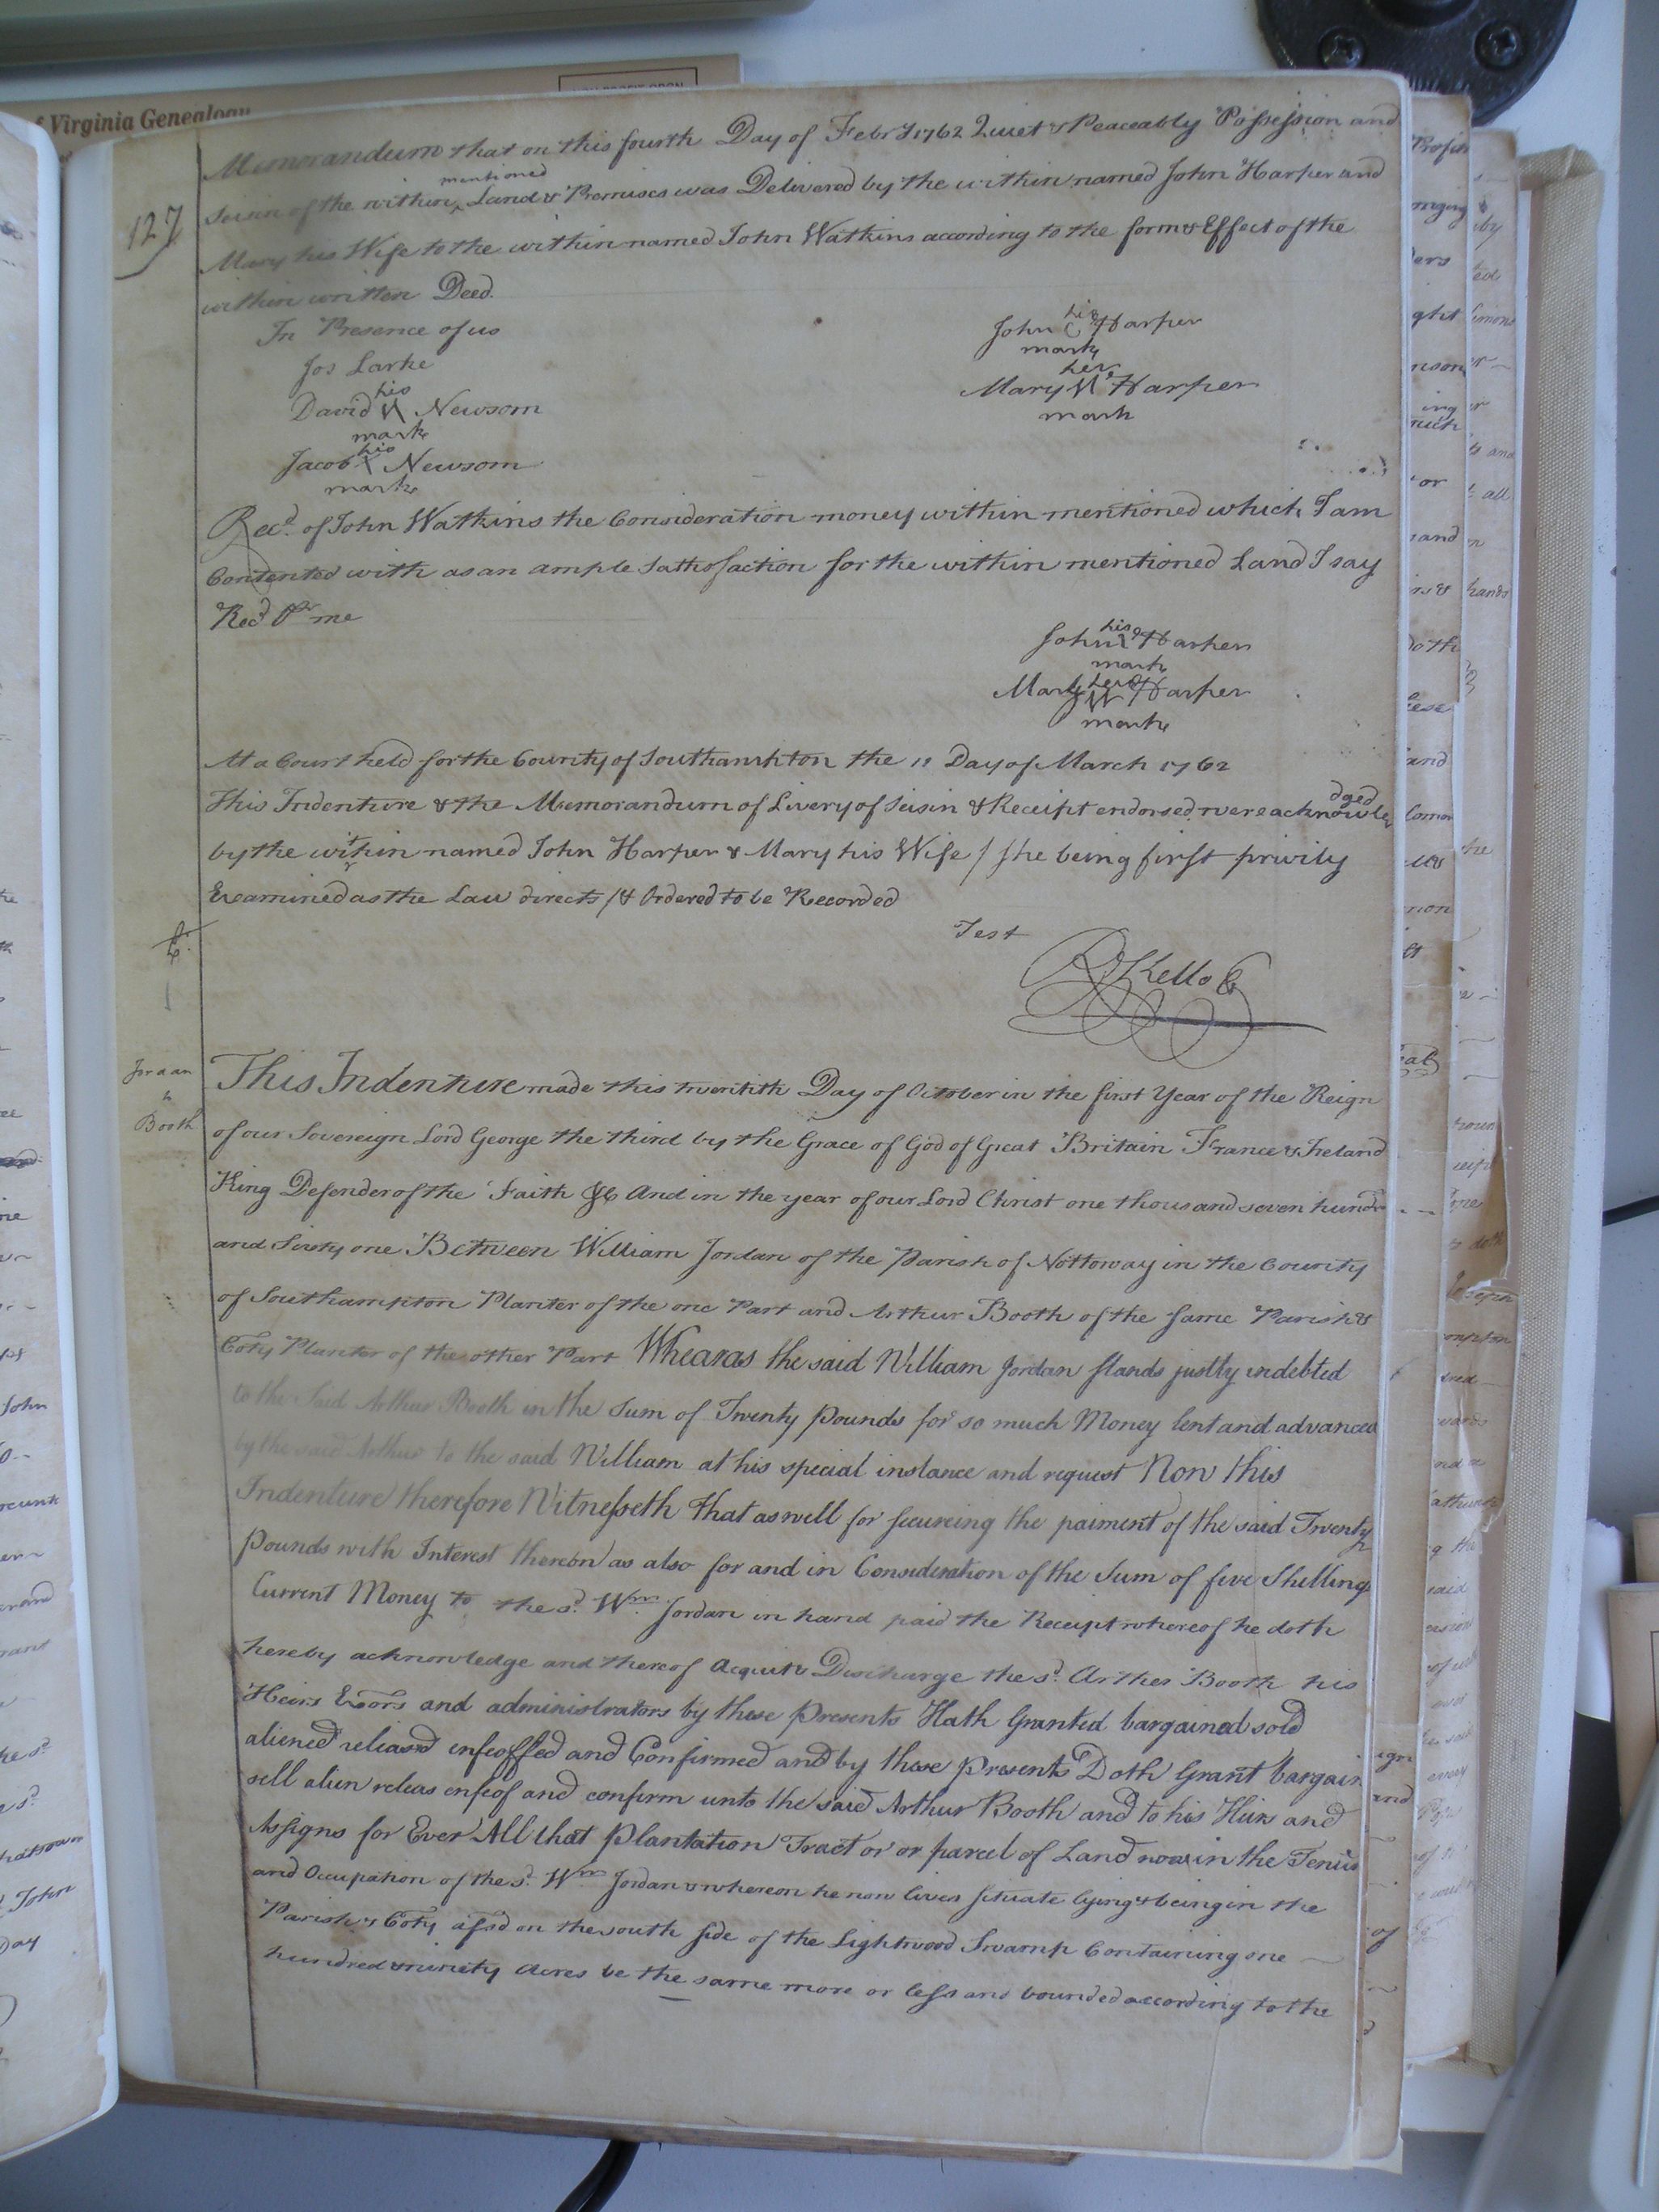 Virginia Genealogy
127
Memorandum that on this fourth Day of Febry 1762 Quiet & Peaceably Possession and
mentioned
Seisin of the within ^ Land & Premises was Delivered by the within named John Harper and
Mary his Wife to the within named John Watkins according to the form & Effect of the
within written Deed.
In Presence of us
Jos Larke
his
David Newsom
mark
his
Jacob X Newsom
mark
his
John Harper
mark
her
Mary Harper
mark
Recd. of John Watkins the Consideration money within mentioned which I am
Contented with as an ample Sattisfaction for the within mentioned Land I say
Recd Pr me
his
John Harper
mark
her
Mary Harper
mark
At a Court held for the County of Southamkton the 11 Day of March 1762
This Indenture & the Memorandum of Livery of Seisin & Receipt endorsed were acknowle
dged
by the within named John Harper & Mary his Wife / she being first privily
Examined as the Law directs / & Ordered to be Recorded
Test
R Kello C
Jordan
to
Booth
This Indenture made this twentith Day of October in the first Year of the Reign
of our Sovereign Lord George the third by the Grace of God of Great Britain France & Ireland
King Defender of the Faith &c And in the year of our Lord Christ one thousand seven hundr
and Sixty one Between William Jordan of the Parish of Nottoway in the County
of Southampton Planter of the one Part and Arthur Booth of the same Parish &
Coty Planter of the other Part Whearas the said William Jordan stands justly indebted
to the Said Arthur Booth in the Sum of Twenty pounds for so much Money lent and advanced
by the said Arthur to the said William at his special instance and request Now this
Indenture therefore Witnesseth that as well for secureing the paiment of the said Twenty
pounds with Interest thereon as also for and in Consideration of the Sum of five Shillings
Current Money to the sd. Wm. Jordan in hand paid the Receipt whereof he doth
hereby acknowledge and thereof Acquit & Discharge the sd. Arther Booth his
Heirs Exors and administrators by these Presents Hath Granted bargained sold
aliened releasd enfeoffed and Confirmed and by these presents Doth Grant bargain
sell alien releas enfeof and confirm unto the said Arthur Booth and to his Heirs and
Assigns for Ever All that plantation Tract or or parcel of Land now in the Tenur
and Occupation of the sd. Wm Jordan & whereon he now lives situate lying & being in the
Parish & Coty afsd on the south side of the Lightwood Swamp Containing one
hundred & ninety Acres be the same more or less and bounded according to the